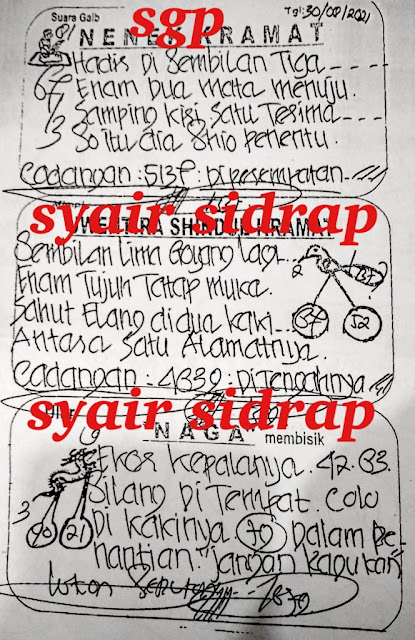 Suara Gaib
Tgl: 30/08/2021
sgp
NENEK KRAMAT
Hadis Di Sembilan Tiga
67 Enam Dua mata menuju.
Samping kiri Satu Terima
13 So itu dia Shio Penentu.
Cadangan: 5137: Di Perempatan
syair sidrap
KRAMAT
Sembilan Lima Goyang lagi
2
Enam Tujuh Tatap muka.
Sahut Elang di dua kaki
52
Antara Satu Alamatnya.
Cadangan: 4839: Di Tengahnya
syair sidrap
NAGA membisik
Ekor Kepalanya. 42. 83.
Silang Di Tempat. Colo
3
90 21
Di kakinya 70 Dalam Pe-
nantian. Jangan Kaputan